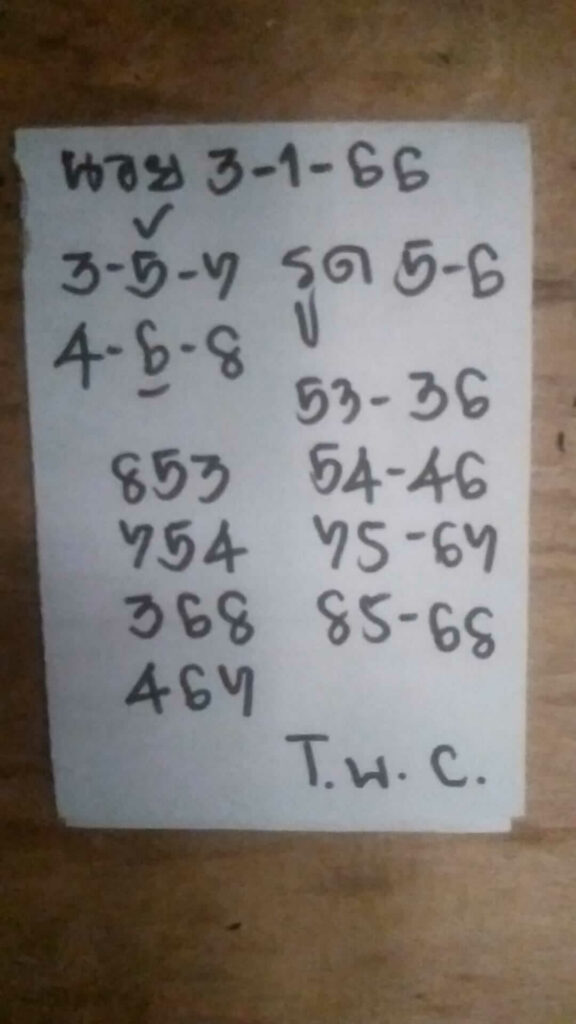 ฮานอย 3-1-66
✓
3-5-7 รูด 5-6
4-6-8
53-36
853 54-46
754 75-67
368 85-68
467
T.W.C.